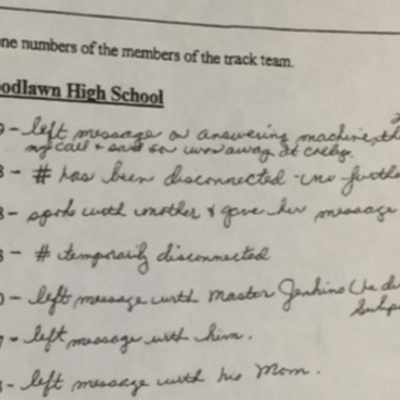 one numbers of the members of the track team.
oodlawn High School
9 - left message on answering machine, th
my call & said son was away at college.
8 - # has been disconnected - no furthe
8 - spoke with mother & gave her message
8 - # temporarily disconnected
0 - left message with Master Jenkins (he di
Subp
7 - left message with him.
8 - left message with his Mom.